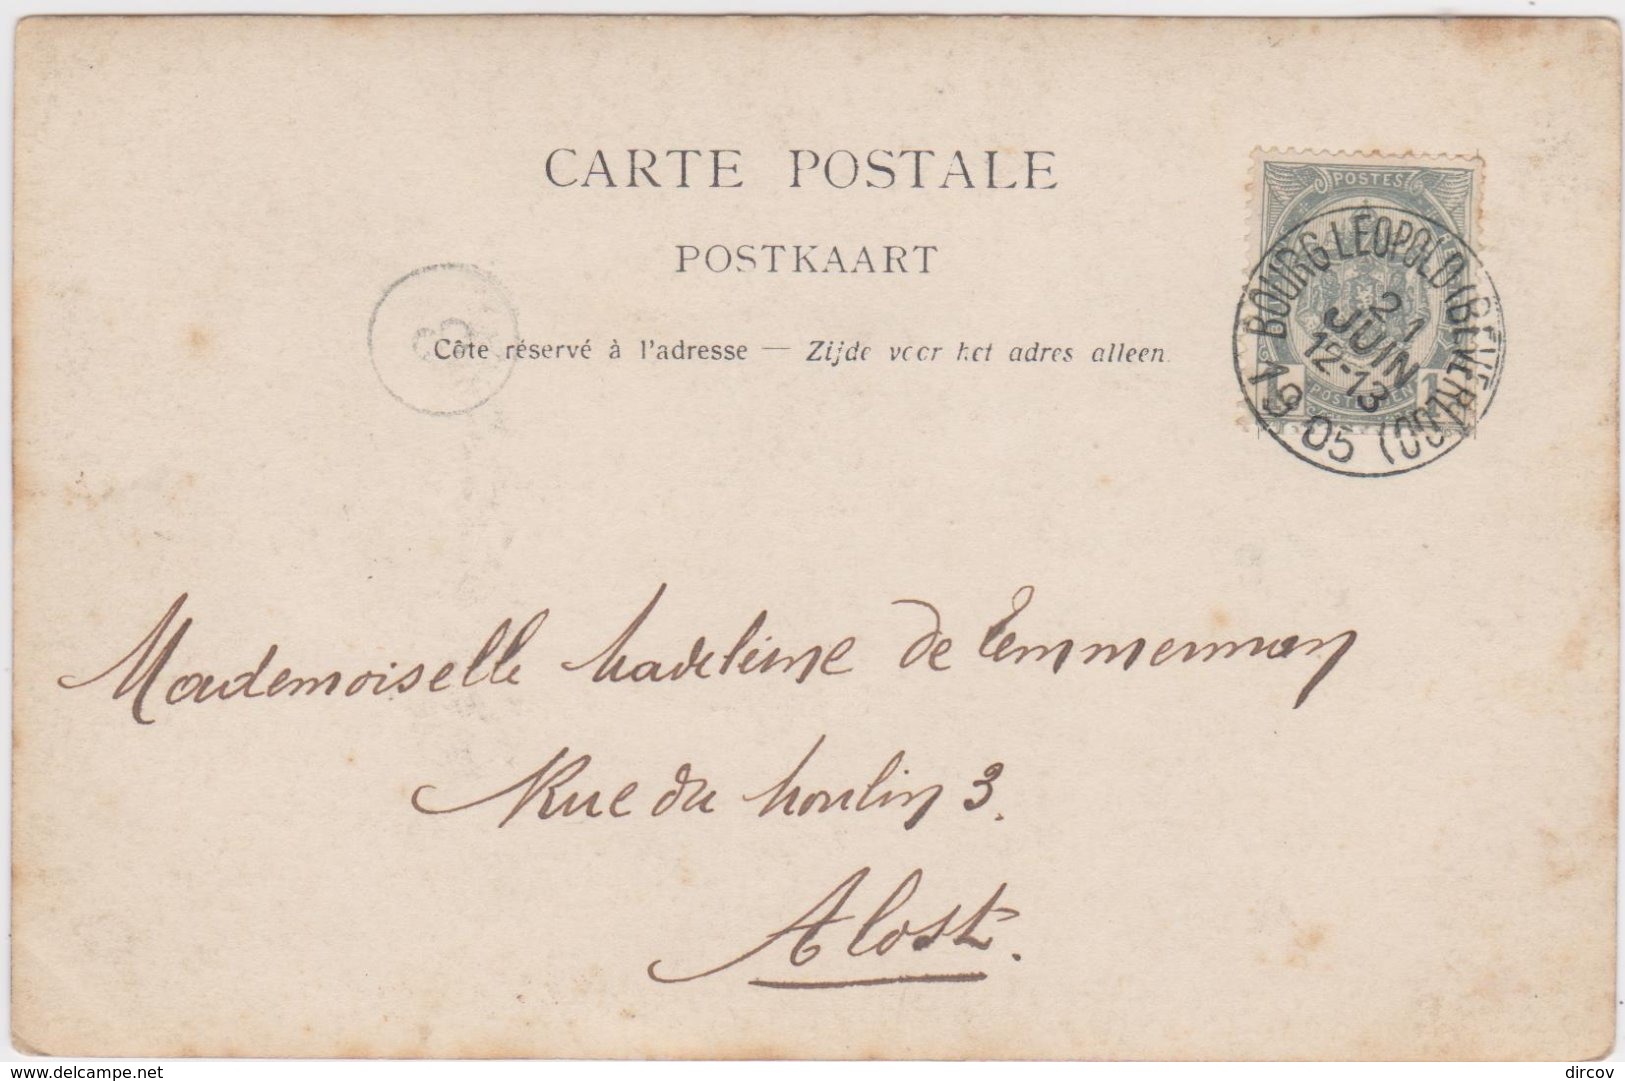 CARTE POSTALE
POSTKAART
Côte réservé à l'adresse — Zijde voor het adres alleen
POSTES
1 POSTERIJEN 1
BOURG-LEOPOLD (BEVERLOO)
21
JUIN
12-13
1905
Mademoiselle Madeleine de
Rue du Moulin 3.
Alost.
www.delcampe.net
dircov